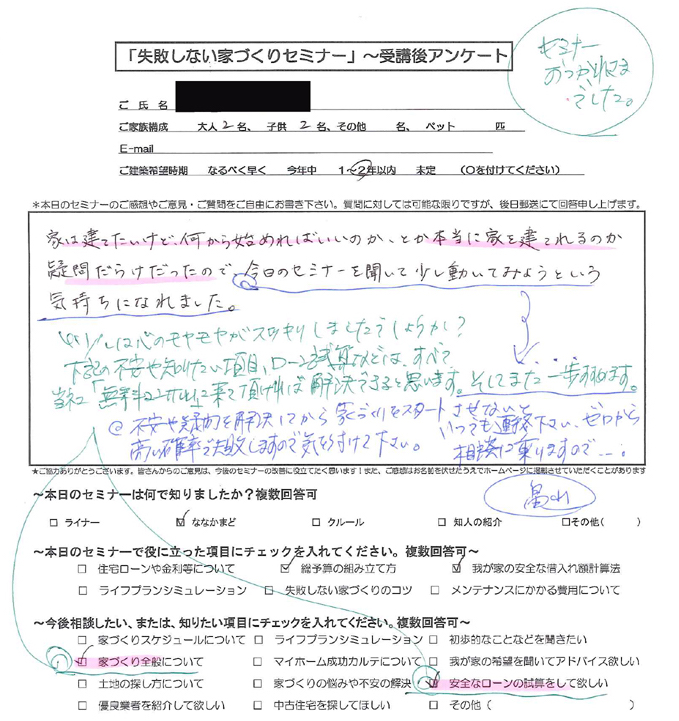 「失敗しない家づくりセミナー」～受講後アンケート
セミナー
おつかれさま
でした。
ご氏名
ご家族構成 大人 2名、 子供 2名、その他 名、 ペット 匹
E-mail
ご建築希望時期 なるべく早く 今年中 1～2年以内 未定 (○を付けてください)
＊本日のセミナーのご感想やご意見・ご質問をご自由にお書き下さい。質問に対しては可能な限りですが、後日郵送にて回答申し上げます。
家は建てたいけど、何から始めればいいのか、とか本当に家を建てれるのか
疑問だらけだったので、今日のセミナーを聞いて少し動いてみようという
気持ちになれました。
少しは心のモヤモヤがスッキリしましたでしょうか？
下記の不安や知りたい項目、ローン試算などは、すべて
当社「無料 に来て頂ければ解決できると思います。そしてまた一歩すすめます。
@ 不安や疑問を解決してから家づくりをスタートさせないと
高い確率で失敗しますので気を付けて下さい。
いつでも連絡下さい、ゼロから
相談に乗りますので…。
★ご協力ありがとうございます。皆さんからのご意見は、今後のセミナーの改善に役立てたく思います！また、ご感想はお名前を伏せたうえでホームページに掲載させていただくことがあります
～本日のセミナーは何で知りましたか？複数回答可
□ ライナー ☑ ななかまど □ クルール □ 知人の紹介 □その他( )
～本日のセミナーで役に立った項目にチェックを入れてください。複数回答可～
□ 住宅ローンや金利等について ☑ 総予算の組み立て方 ☑ 我が家の安全な借入れ額計算法
□ ライフプランシミュレーション □ 失敗しない家づくりのコツ □ メンテナンスにかかる費用について
～今後相談したい、または、知りたい項目にチェックを入れてください。複数回答可～
□ 家づくりスケジュールについて □ ライフプランシミュレーション □ 初歩的なことなどを聞きたい
☑ 家づくり全般について □ マイホーム成功カルテについて □ 我が家の希望を聞いてアドバイス欲しい
□ 土地の探し方について □ 家づくりの悩みや不安の解決 ☑ 安全なローンの試算をして欲しい
□ 優良業者を紹介して欲しい □ 中古住宅を探してほしい □ その他 ( )